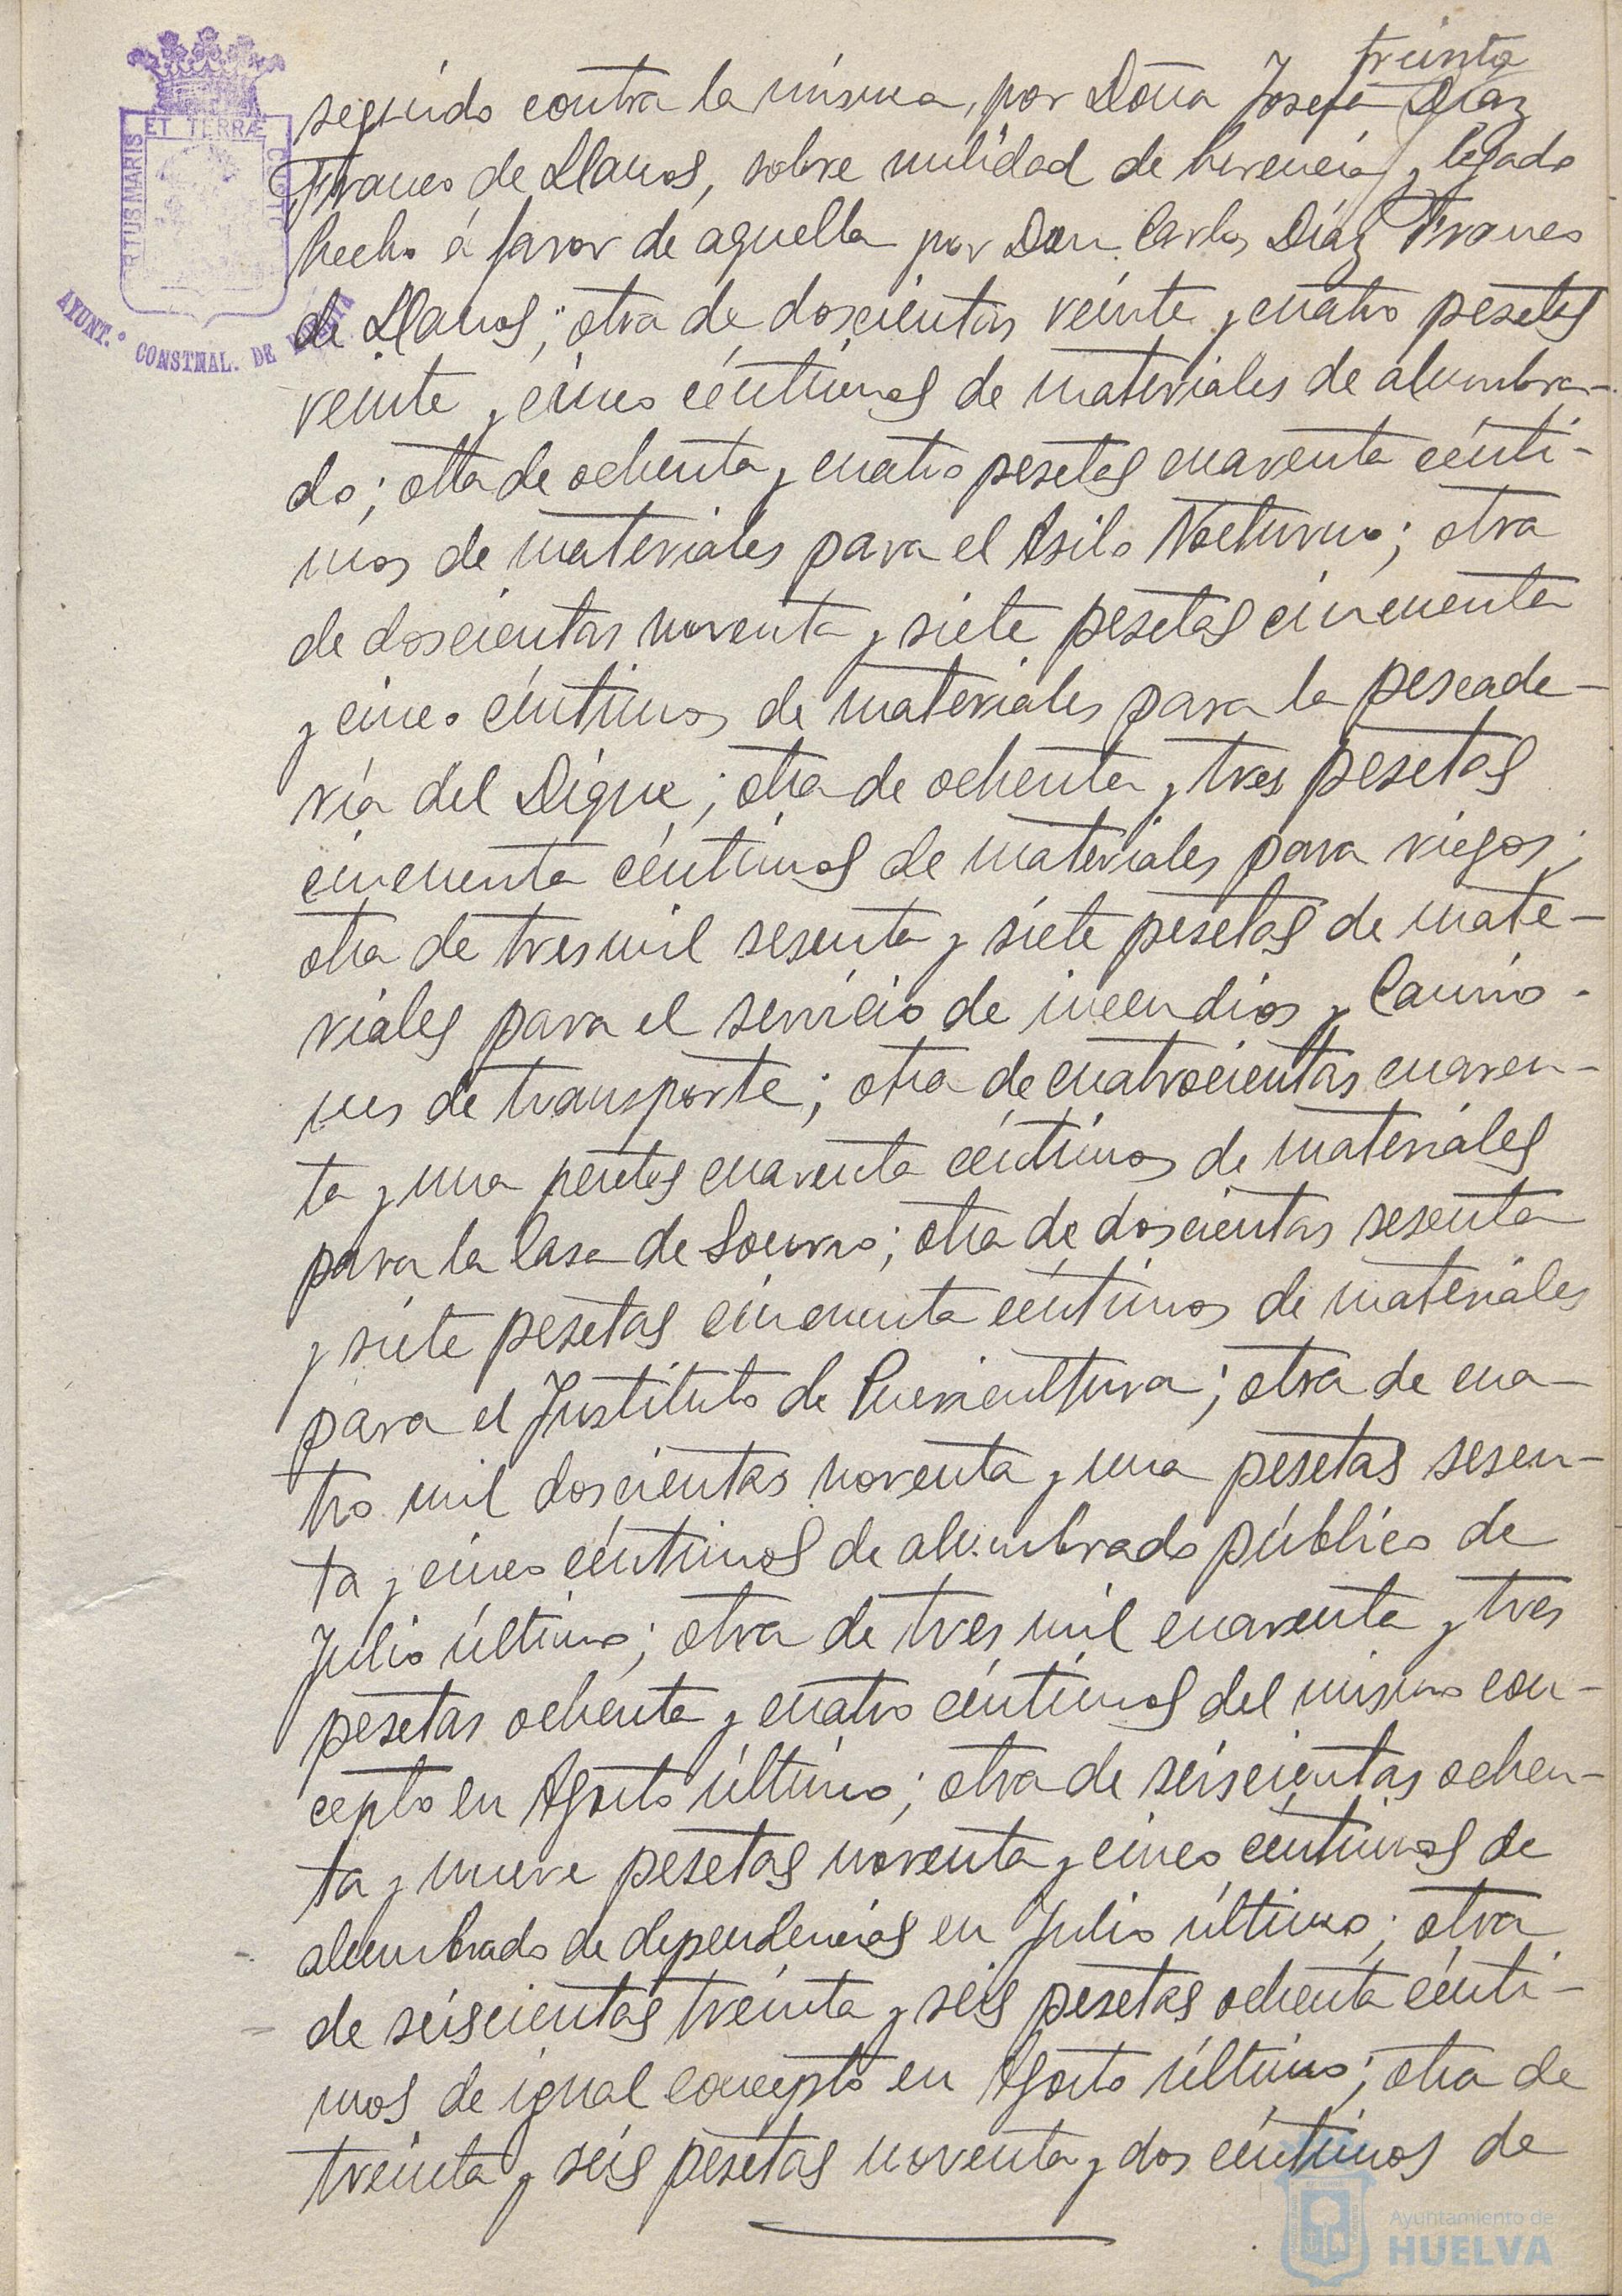 treinta
seguido contra la misma, por Doña Josefa Díaz
Franco de Llanos, sobre nulidad de herencia y legado
hecho á favor de aquella por Don Carlos Díaz Franco
de Llanos; otra de doscientas veinte y cuatro pesetas
veinte y cinco céntimos de materiales de alumbra-
do; otra de ochenta y cuatro pesetas cuarenta cénti-
mos de materiales para el Asilo Nocturno; otra
de doscientas noventa y siete pesetas cincuenta
y cinco céntimos de materiales para la pescade-
ría del Dique; otra de ochenta y tres pesetas
cincuenta céntimos de materiales para riegos;
otra de tres mil sesenta y siete pesetas de mate-
riales para el servicio de incendios y Camio-
nes de transporte; otra de cuatrocientas cuaren-
ta y una pesetas cuarenta céntimos de materiales
para la Casa de Socorro; otra de doscientas sesenta
y siete pesetas cincuenta céntimos de materiales
para el Instituto de Puericultura; otra de cua-
tro mil doscientas noventa y una pesetas sesen-
ta y cinco céntimos de alumbrado público de
Julio último; otra de tres mil cuarenta y tres
pesetas ochenta y cuatro céntimos del mismo con-
cepto en Agosto último; otra de seiscientas ochen-
ta y nueve pesetas noventa y cinco céntimos de
alumbrado de dependencias en Julio último; otra
de seiscientas treinta y seis pesetas ochenta cénti-
mos de igual concepto en Agosto último; otra de
treinta y seis pesetas noventa y dos céntimos de
ET TERRÆ
RTUS MARIS
CUSTO
AYUNT.º CONSTNAL. DE
Ayuntamiento de
HUELVA